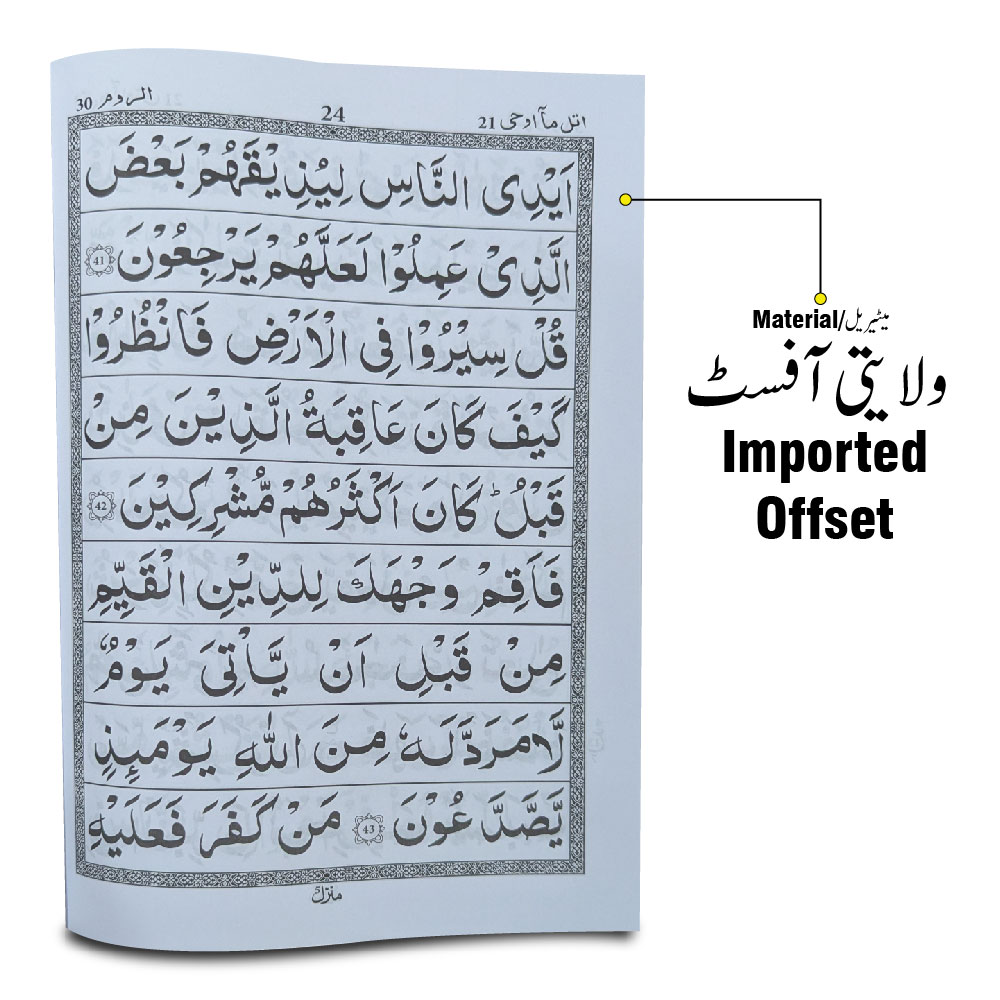 اتل مآ اوحی 21
24
الروم 30
اَيْدِى النَّاسِ لِيُذِيْقَهُمْ بَعْضَ
الَّذِىْ عَمِلُوْا لَعَلَّهُمْ يَرْجِعُوْنَ 41
قُلْ سِيْرُوْا فِى الْاَرْضِ فَانْظُرُوْا
كَيْفَ كَانَ عَاقِبَةُ الَّذِيْنَ مِنْ
قَبْلُ ؕ كَانَ اَكْثَرُهُمْ مُّشْرِكِيْنَ 42
فَاَقِمْ وَجْهَكَ لِلدِّيْنِ الْقَيِّمِ
مِنْ قَبْلِ اَنْ يَّاْتِىَ يَوْمٌ
لَّا مَرَدَّ لَهٗ مِنَ اللّٰهِ يَوْمَىِٕذٍ
يَّصَّدَّعُوْنَ 43 مَنْ كَفَرَ فَعَلَيْهِ
Material/میٹیریل
ولایتی آفسٹ
Imported
Offset